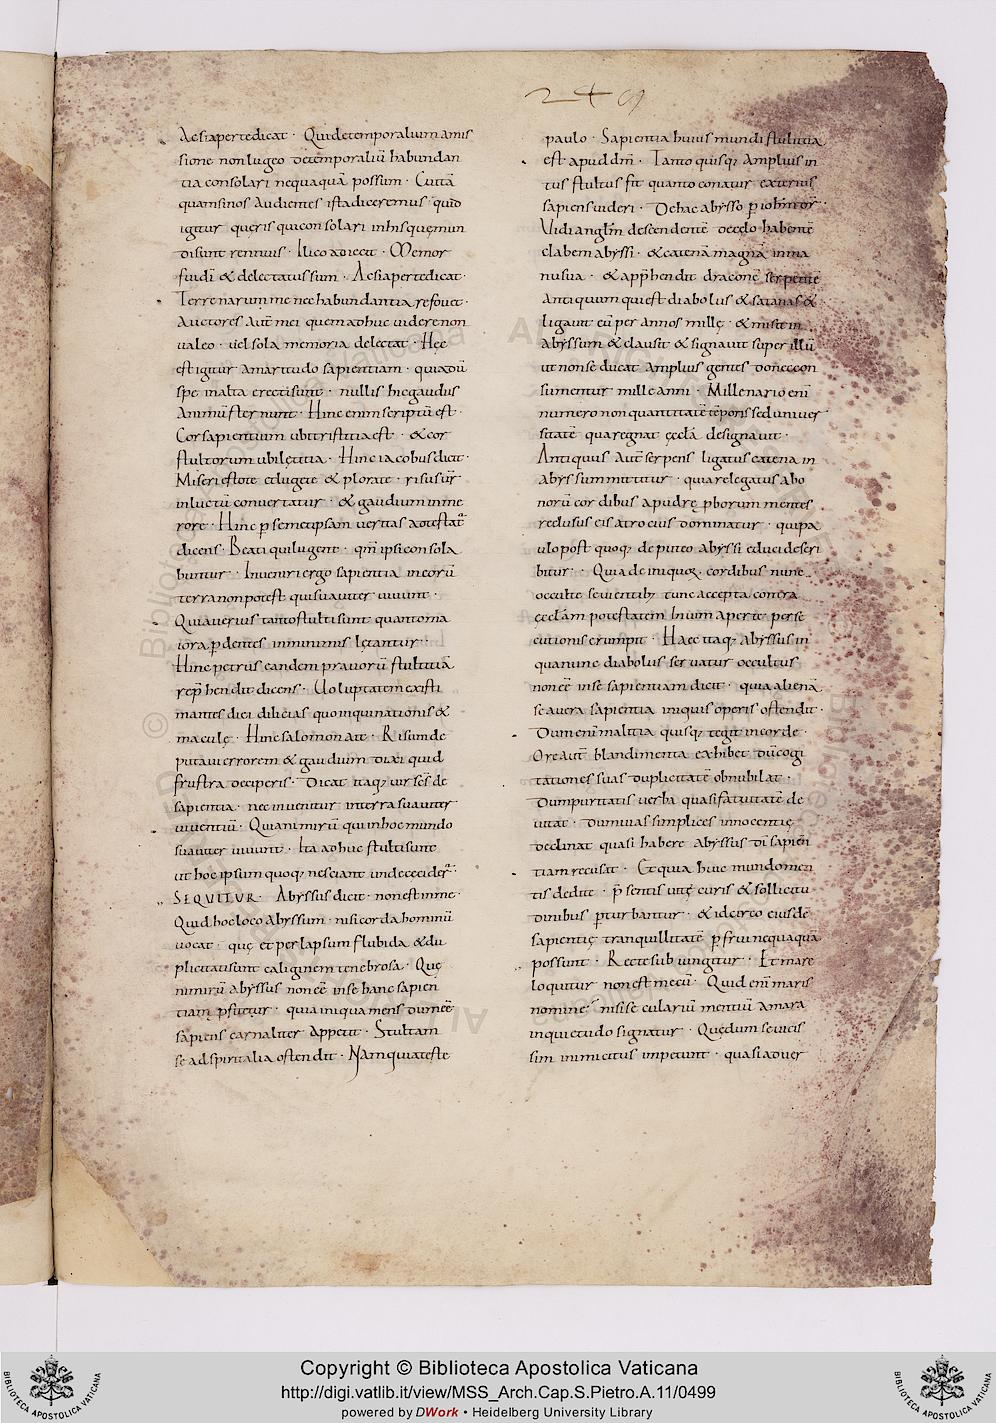 249
Ac si aperte dicat · Qui de temporalium amis
sione non lugeo de temporaliū habundan
tia consolari nequaquā possum · Cui tā
quam si nos audientes ista diceremus quid
igitur quęris qui consolari in his quę mun
di sunt rennuis · Ilico adiecit · Memor
fui dī & delectatus sum · Ac si aperte dicat ·
Terrenarum me nec habundantia refovet ·
Auctoris aut̄ mei quem adhuc videre non
valeo · vel sola memoria delectat · Hęc
est igitur amaritudo sapientiam · quia dū
spe in alta erecti sunt · nullis hic gaudiis
animū sternunt · Hinc enim scriptū est ·
Cor sapientium ubi tristitia est · & cor
stultorum ubi lętitia · Hinc iacobus dicit ·
Miseri estote & lugete & plorate · risus ur̄
in luctū convertatur · & gaudium in me
rore · Hinc p semetipsam veritas adtestat
dicens · Beati qui lugent · qm̄ ipsi consola
buntur · Inveniri ergo sapientia in eorū
terra non potest qui suaviter vivunt ·
Quia verius tanto stulti sunt quanto ma
iora pdentes in minimis lętantur ·
Hinc petrus eandem pravorū stultitiā
rep̄hendit dicens · Voluptatem existi
mantes diei dilicias quoinquinationis &
maculę · Hinc salomon ait · Risum de
putavi errorem & gaudium dixi quid
frustra deciperis · Dicat itaq; vir scs̄ de
sapientia · nec invenitur in terra suaviter
viventiū · Quia nimirū qui in hoc mundo
suaviter vivunt · Ita adhuc stulti sunt
ut hoc ipsum quoq; nesciant unde cecider̄ ·
SEQUITUR · Abyssus dicit · non est in me ·
Quid hoc loco abyssum · nisi corda hominū
vocat · quę et per lapsum flubida & du
plicitatis unt caliginem tenebrosa · Quę
nimirū abyssus non eē in se hanc sapien
tiam pfitetur · quia iniqua mens dum eē
sapiens carnaliter appetit · Stultam
se ad spiritalia ostendit · Nam quia teste
paulo · Sapientia huius mundi stultitia
est apud dm̄ · Tanto quisq; amplius in
tus stultus fit quanto conatur exterius
sapiens videri · De hac abysso p iohm̄
Vidi anglm̄ descendentē de cęlo habentē
clabem abyssi · & catenā magnā in ma
nu sua · & app̄hendit draconē serpentē
antiquum qui est diabolus & satanas &
ligavit eū per annos mille · & misit in
abyssum & clausit & signavit super illū
ut non seducat amplius gentes donec con
sumentur mille anni · Millenario enī
numero non quantitatē tēporis sed univer
sitatē qua regnat ęccla designavit ·
Antiquus aut̄ serpens ligatus catena in
abyssum mittitur · quia relegatus a bo
norū cordibus apud rę pborum mentes
reclusus eis atro cius dominatur · qui pa
ulo post quoq; de puteo abyssi educi descri
bitur · Quia de iniquoꝝ cordibus nunc
occulte sęvientib; tunc accepta contra
ęcclam potestatem In vim aperte perse
cutionis erumpit · Haec itaq; abyssus in
qua nunc diabolus servatur occultus
non eē in se sapientiam dicit · quia alienā
se a vera sapientia iniquis operis ostendit ·
Dum enī malitia quisq; tegit in corde ·
Ore aut̄ blandimenta exhibet dū cogi
tationes suas duplicitatē obnubilat ·
Dum puritatis verba quasi fatuitatē de
vitat · dum vias simplices innocentię
declinat quasi habere abyssus dī sapien
tiam recusat · Et qui a huic mundo men
tis dedite · p̄sentis vitę curis & sollicitu
dinibus pturbantur · & idcirco eiusdē
sapientię tranquillitatē pfrui nequaquā
possunt · Recte subiungitur · Et mare
loquitur non est mecū · Quid enī maris
nomine nisi seculariū mentiū amara
inquietudo signatur · Quę dum se vicis
sim inimicitus impetunt · quasi adver
Copyright © Biblioteca Apostolica Vaticana
http://digi.vatlib.it/view/MSS_Arch.Cap.S.Pietro.A.11/0499
powered by DWork • Heidelberg University Library